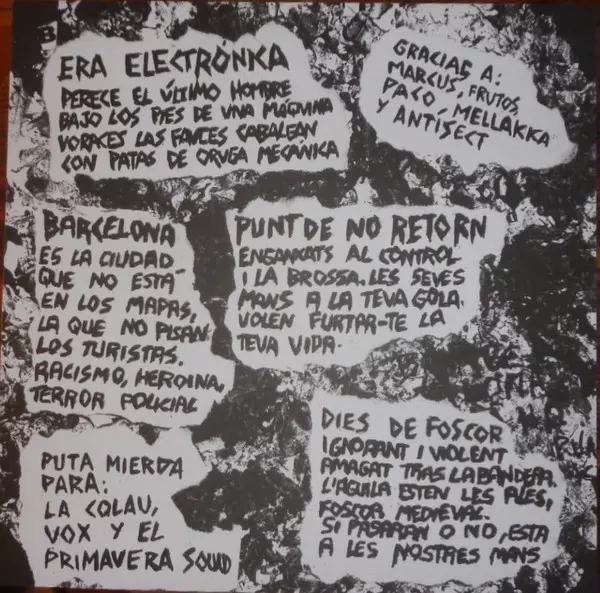 B
ERA ELECTRÓNICA
PERECE EL ÚLTIMO HOMBRE
BAJO LOS PIES DE UNA MÁQUINA
VORACES LAS FAUCES CABALGAN
CON PATAS DE ORUGA MECÁNICA
GRACIAS A:
MARCUS, FRUTOS,
PACO, MELLAKKA
Y ANTISECT
BARCELONA
ES LA CIUDAD
QUE NO ESTÁ
EN LOS MAPAS,
LA QUE NO PISAN
LOS TURISTAS.
RACISMO, HEROINA,
TERROR POLICIAL
PUNT DE NO RETORN
ENGANXATS AL CONTROL
I LA BROSSA. LES SEVES
MANS A LA TEVA GOLA.
VOLEN FURTAR-TE LA
TEVA VIDA.
PUTA MIERDA
PARA:
LA COLAU,
VOX Y EL
PRIMAVERA SOUND
DIES DE FOSCOR
IGNORANT I VIOLENT
AMAGAT TRAS LA BANDERA.
L'ÀGUILA ESTEN LES ALES,
FOSCOR MEDIEVAL.
SI PASARAN O NO, ESTA
A LES NOSTRES MANS